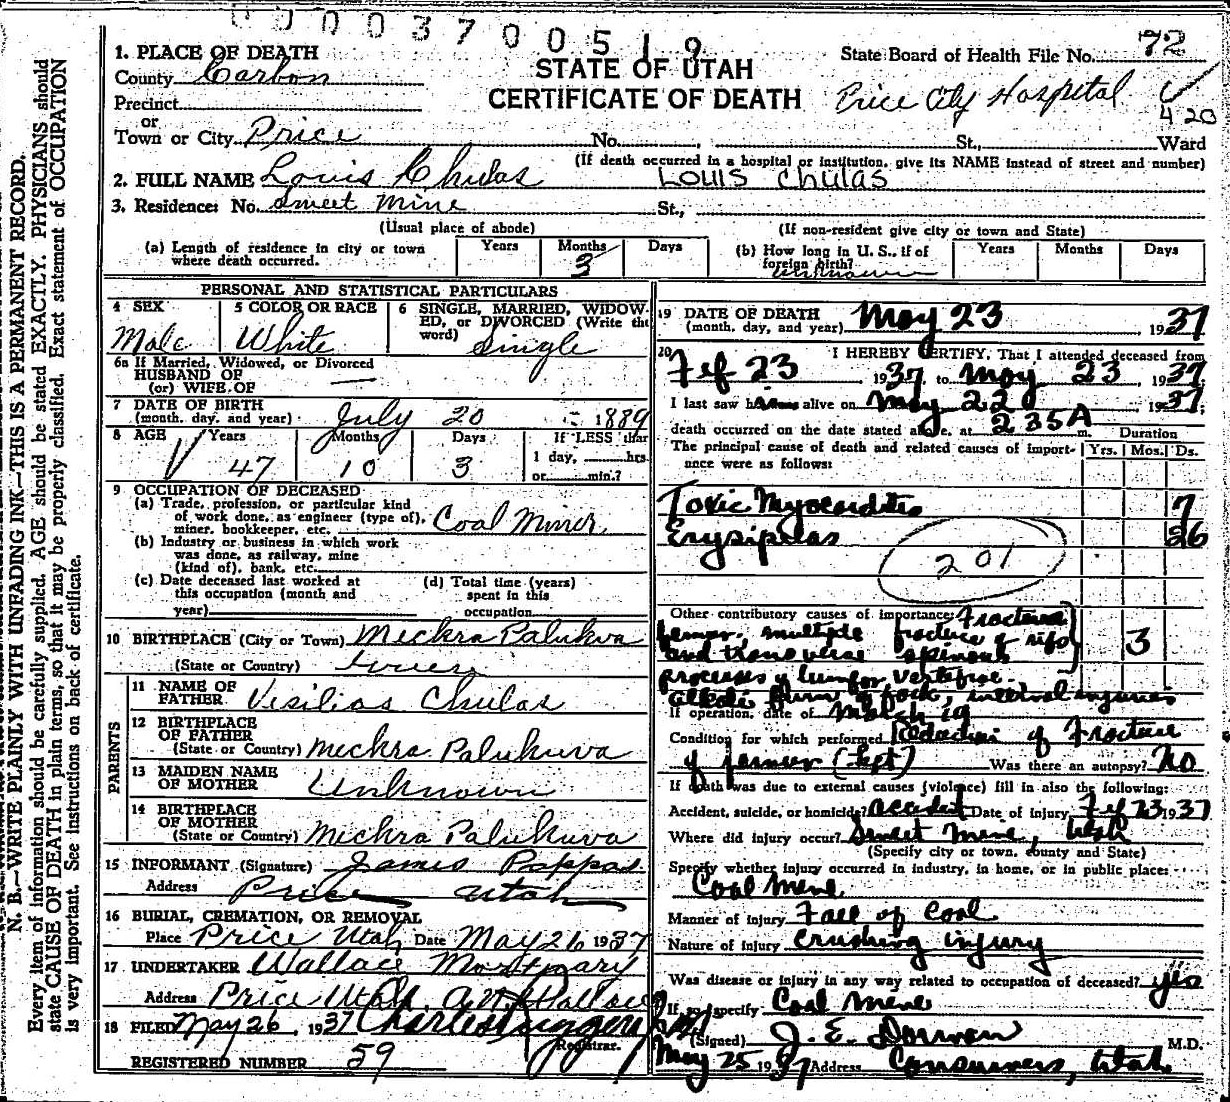 000037005 19
1. PLACE OF DEATH
State Board of Health File No. 72
County Carbon
STATE OF UTAH
Precinct
CERTIFICATE OF DEATH
Price City Hospital
420
or
Town or City Price No. St., Ward
(If death occurred in a hospital or institution, give its NAME instead of street and number)
2. FULL NAME Louis Chulas LOUIS Chulas
3. Residence: No. Sweet Mine St.,
(Usual place of abode) (If non-resident give city or town and State)
(a) Length of residence in city or town where death occurred. Years Months 3 Days
(b) How long in U. S., if of foreign birth? unknown Years Months Days
PERSONAL AND STATISTICAL PARTICULARS
4 SEX Male
5 COLOR OR RACE White
6 SINGLE, MARRIED, WIDOWED, or DIVORCED (Write the word) Single
6a If Married, Widowed, or Divorced
HUSBAND OF
(or) WIFE OF
7 DATE OF BIRTH
(month, day, and year) July 20 1889
8 AGE Years 47 Months 10 Days 3 If LESS than 1 day, hrs. or min.?
9 OCCUPATION OF DECEASED
(a) Trade, profession, or particular kind
of work done, as engineer (type of),
miner, bookkeeper, etc. Coal Miner
(b) Industry or business in which work
was done, as railway, mine
(kind of), bank, etc.
(c) Date deceased last worked at
this occupation (month and
year)
(d) Total time (years)
spent in this
occupation
10 BIRTHPLACE (City or Town) Mickra Palukva
(State or Country)
PARENTS
11 NAME OF
FATHER Visilias Chulas
12 BIRTHPLACE
OF FATHER
(State or Country) Mickra Palukuva
13 MAIDEN NAME
OF MOTHER Unknown
14 BIRTHPLACE
OF MOTHER
(State or Country) Mickra Palukuva
15 INFORMANT (Signature) James Pappas
Address Price Utah
16 BURIAL, CREMATION, OR REMOVAL
Place Price Utah Date May 26 1937
17 UNDERTAKER Wallace Mortuary
Address Price Utah. Wallace
18 FILED May 26, 1937
Registrar.
REGISTERED NUMBER 59
19 DATE OF DEATH
(month, day, and year) May 23 1937
20 I HEREBY CERTIFY, That I attended deceased from
Feb 23 1937, to May 23, 1937,
I last saw him alive on May 22, 1937,
death occurred on the date stated above, at 235A m. Duration
The principal cause of death and related causes of importance were as follows: Yrs. Mos. Ds.
Toxic Myocarditis 7
Erysipelas 26
201
Other contributory causes of importance: Fractured
femur, multiple fracture of ribs
and transverse spinous 3
processes of lumbar vertebrae.
internal injuries
If operation, date of March 19
Condition for which performed Reduction of Fracture
of femur (left) Was there an autopsy? No
If death was due to external causes (violence) fill in also the following:
Accident, suicide, or homicide? accident Date of injury Feb 23 1937
Where did injury occur? Sweet Mine, Utah
(Specify city or town, county and State)
Specify whether injury occurred in industry, in home, or in public place:
Coal Mine
Manner of injury Fall of Coal
Nature of injury Crushing injury
Was disease or injury in any way related to occupation of deceased? yes
If so, specify Coal Mine
(Signed) J. E. Dorman M.D.
May 25 1937 Address Consumers, Utah
N. B.—WRITE PLAINLY WITH UNFADING INK—THIS IS A PERMANENT RECORD.
Every item of information should be carefully supplied. AGE should be stated EXACTLY. PHYSICIANS should
state CAUSE OF DEATH in plain terms, so that it may be properly classified. Exact statement of OCCUPATION
is very important. See instructions on back of certificate.